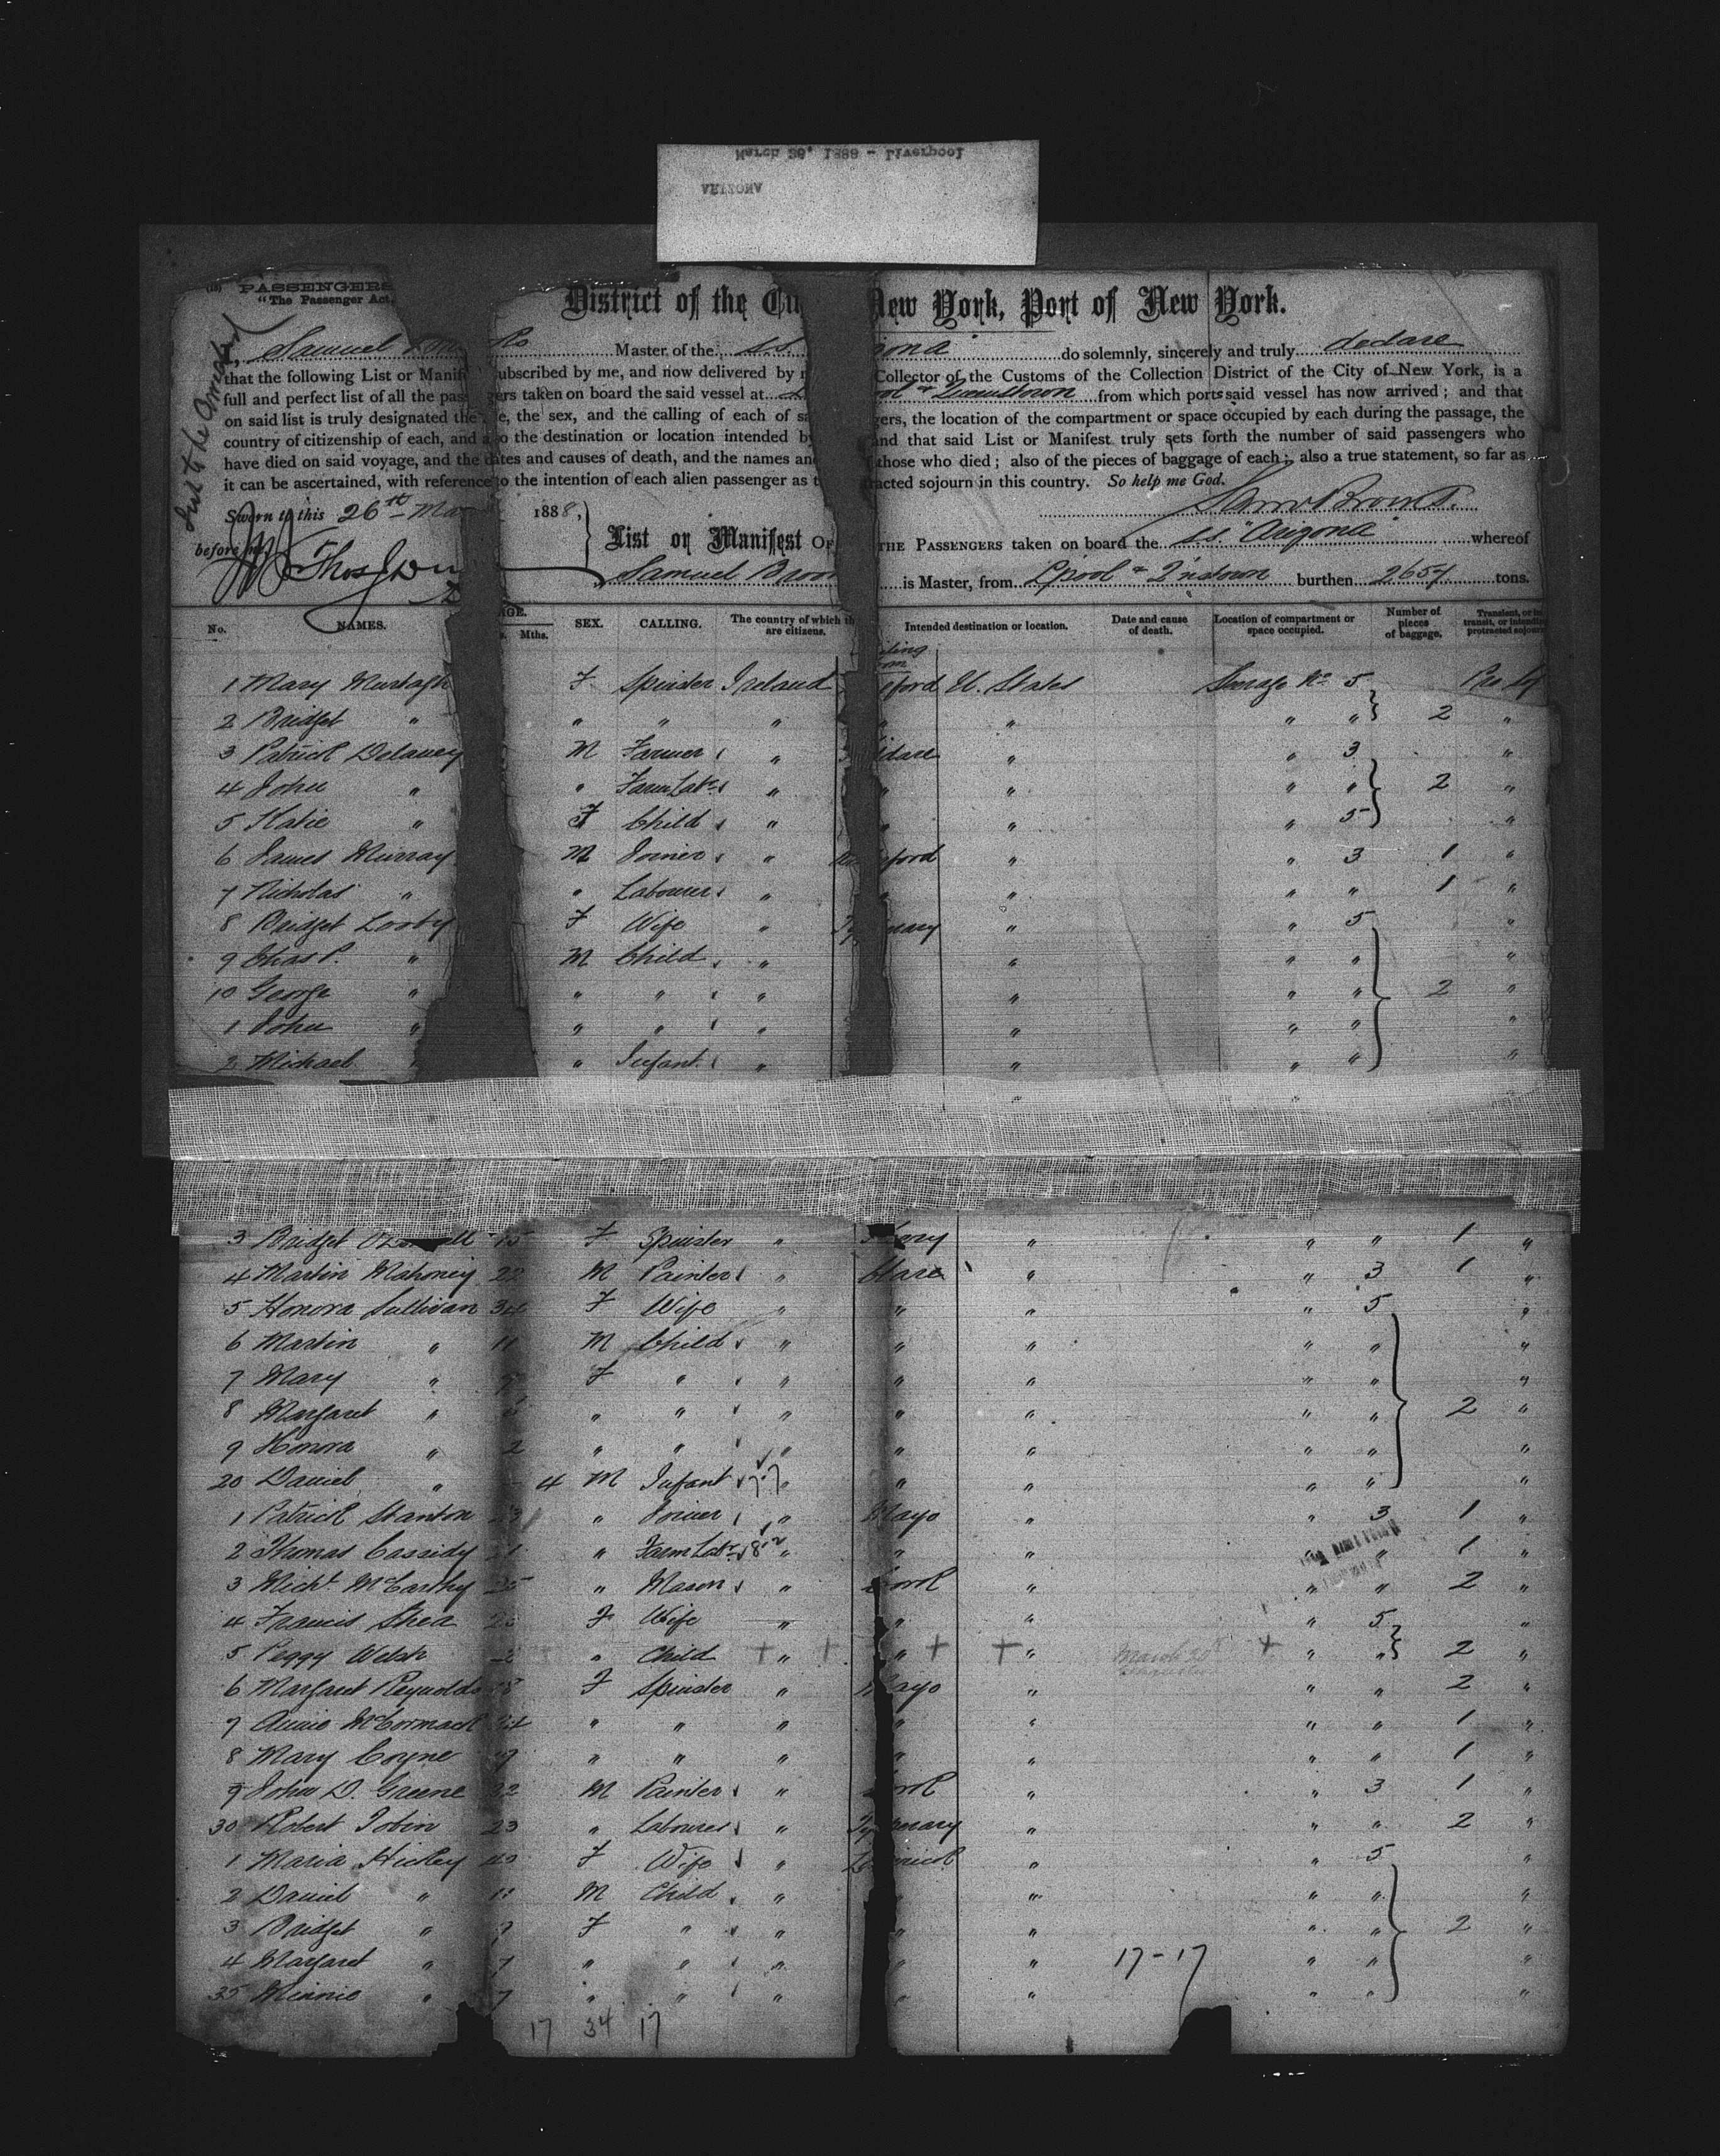 March 26, 1888 - Liverpool
ARIZONA
PASSENGERS
"The Passenger Act,
District of the City New York, Port of New York.
Samuel Master of the S.S. do solemnly, sincerely and truly declare
that the following List or Manif subscribed by me, and now delivered by Collector of the Customs of the Collection District of the City of New York, is a
full and perfect list of all the pas gers taken on board the said vessel at Queenstown from which ports said vessel has now arrived; and that
on said list is truly designated the e, the sex, and the calling of each of gers, the location of the compartment or space occupied by each during the passage, the
country of citizenship of each, and also the destination or location intended by and that said List or Manifest truly sets forth the number of said passengers who
have died on said voyage, and the dates and causes of death, and the names and those who died; also of the pieces of baggage of each; also a true statement, so far as
it can be ascertained, with reference to the intention of each alien passenger as to racted sojourn in this country. So help me God.
Sworn to this 26th Mar 1888,
before me
List or Manifest OF THE PASSENGERS taken on board the ss "Arizona" whereof
Samuel Broo is Master, from Lpool & Qnstown burthen 2657 tons.
No. NAMES. AGE. Mths. SEX. CALLING. The country of which th are citizens. Intended destination or location. Date and cause of death. Location of compartment or space occupied. Number of pieces of baggage.
1 Mary Murtagh F Spinster Ireland ford U. States Steerage No 5
2 Bridget " " " " " " " 2 "
3 Patrick Delaney M Farmer " dare " " 3 "
4 John " " Farm Labr " " " " " 2 "
5 Katie " F Child " " " " 5 "
6 James Murray M Joiner " ford " " 3 1 "
7 Nicholas " " Labourer " " " " " 1 "
8 Bridget Looby F Wife " rary " " 5 "
9 Chas P. " M Child " " " " "
10 George " " " " " " " 2 "
1 John " " " " " " " "
2 Michael " " Infant " " " " "
3 Bridget 15 F Spinster " " " " 1 "
4 Martin Mahoney 22 M Painter " Clare " " 3 1 "
5 Honora Sullivan 34 F Wife " " " " 5 "
6 Martin " 11 M Child " " " " " "
7 Mary " F " " " " " " "
8 Margaret " " " " " " " " 2 "
9 Honora " 2 " " " " " " " "
20 Daniel " 4 M Infant " " " " " "
1 Patrick Stanton " Joiner " Mayo " " 3 1 "
2 Thomas Cassidy " Farm Labr " " " " " 1 "
3 Michl McCarthy 25 " Mason " Cork " " " 2 "
4 Francis Shea F Wife " " " " 5 "
5 Peggy Welsh " Child + " + " + + " + " " 2 "
6 Margaret Reynolds 18 F Spinster " Mayo " " " 2 "
7 Annie McCormack " " " " " " " 1 "
8 Mary Coyne " " " " " " " 1 "
9 John D. Greene 22 M Painter " Cork " " 3 1 "
30 Robert Tobin 23 " Labourer " Tipperary " " " 2 "
1 Maria Hickey F Wife " Limerick " " 5 "
2 Daniel " 11 M Child " " " " " "
3 Bridget " F " " " " " " 2 "
4 Margaret " 7 " " " " " 17-17 " " "
35 Minnie " 7 " " " " " " " "
17 34 17